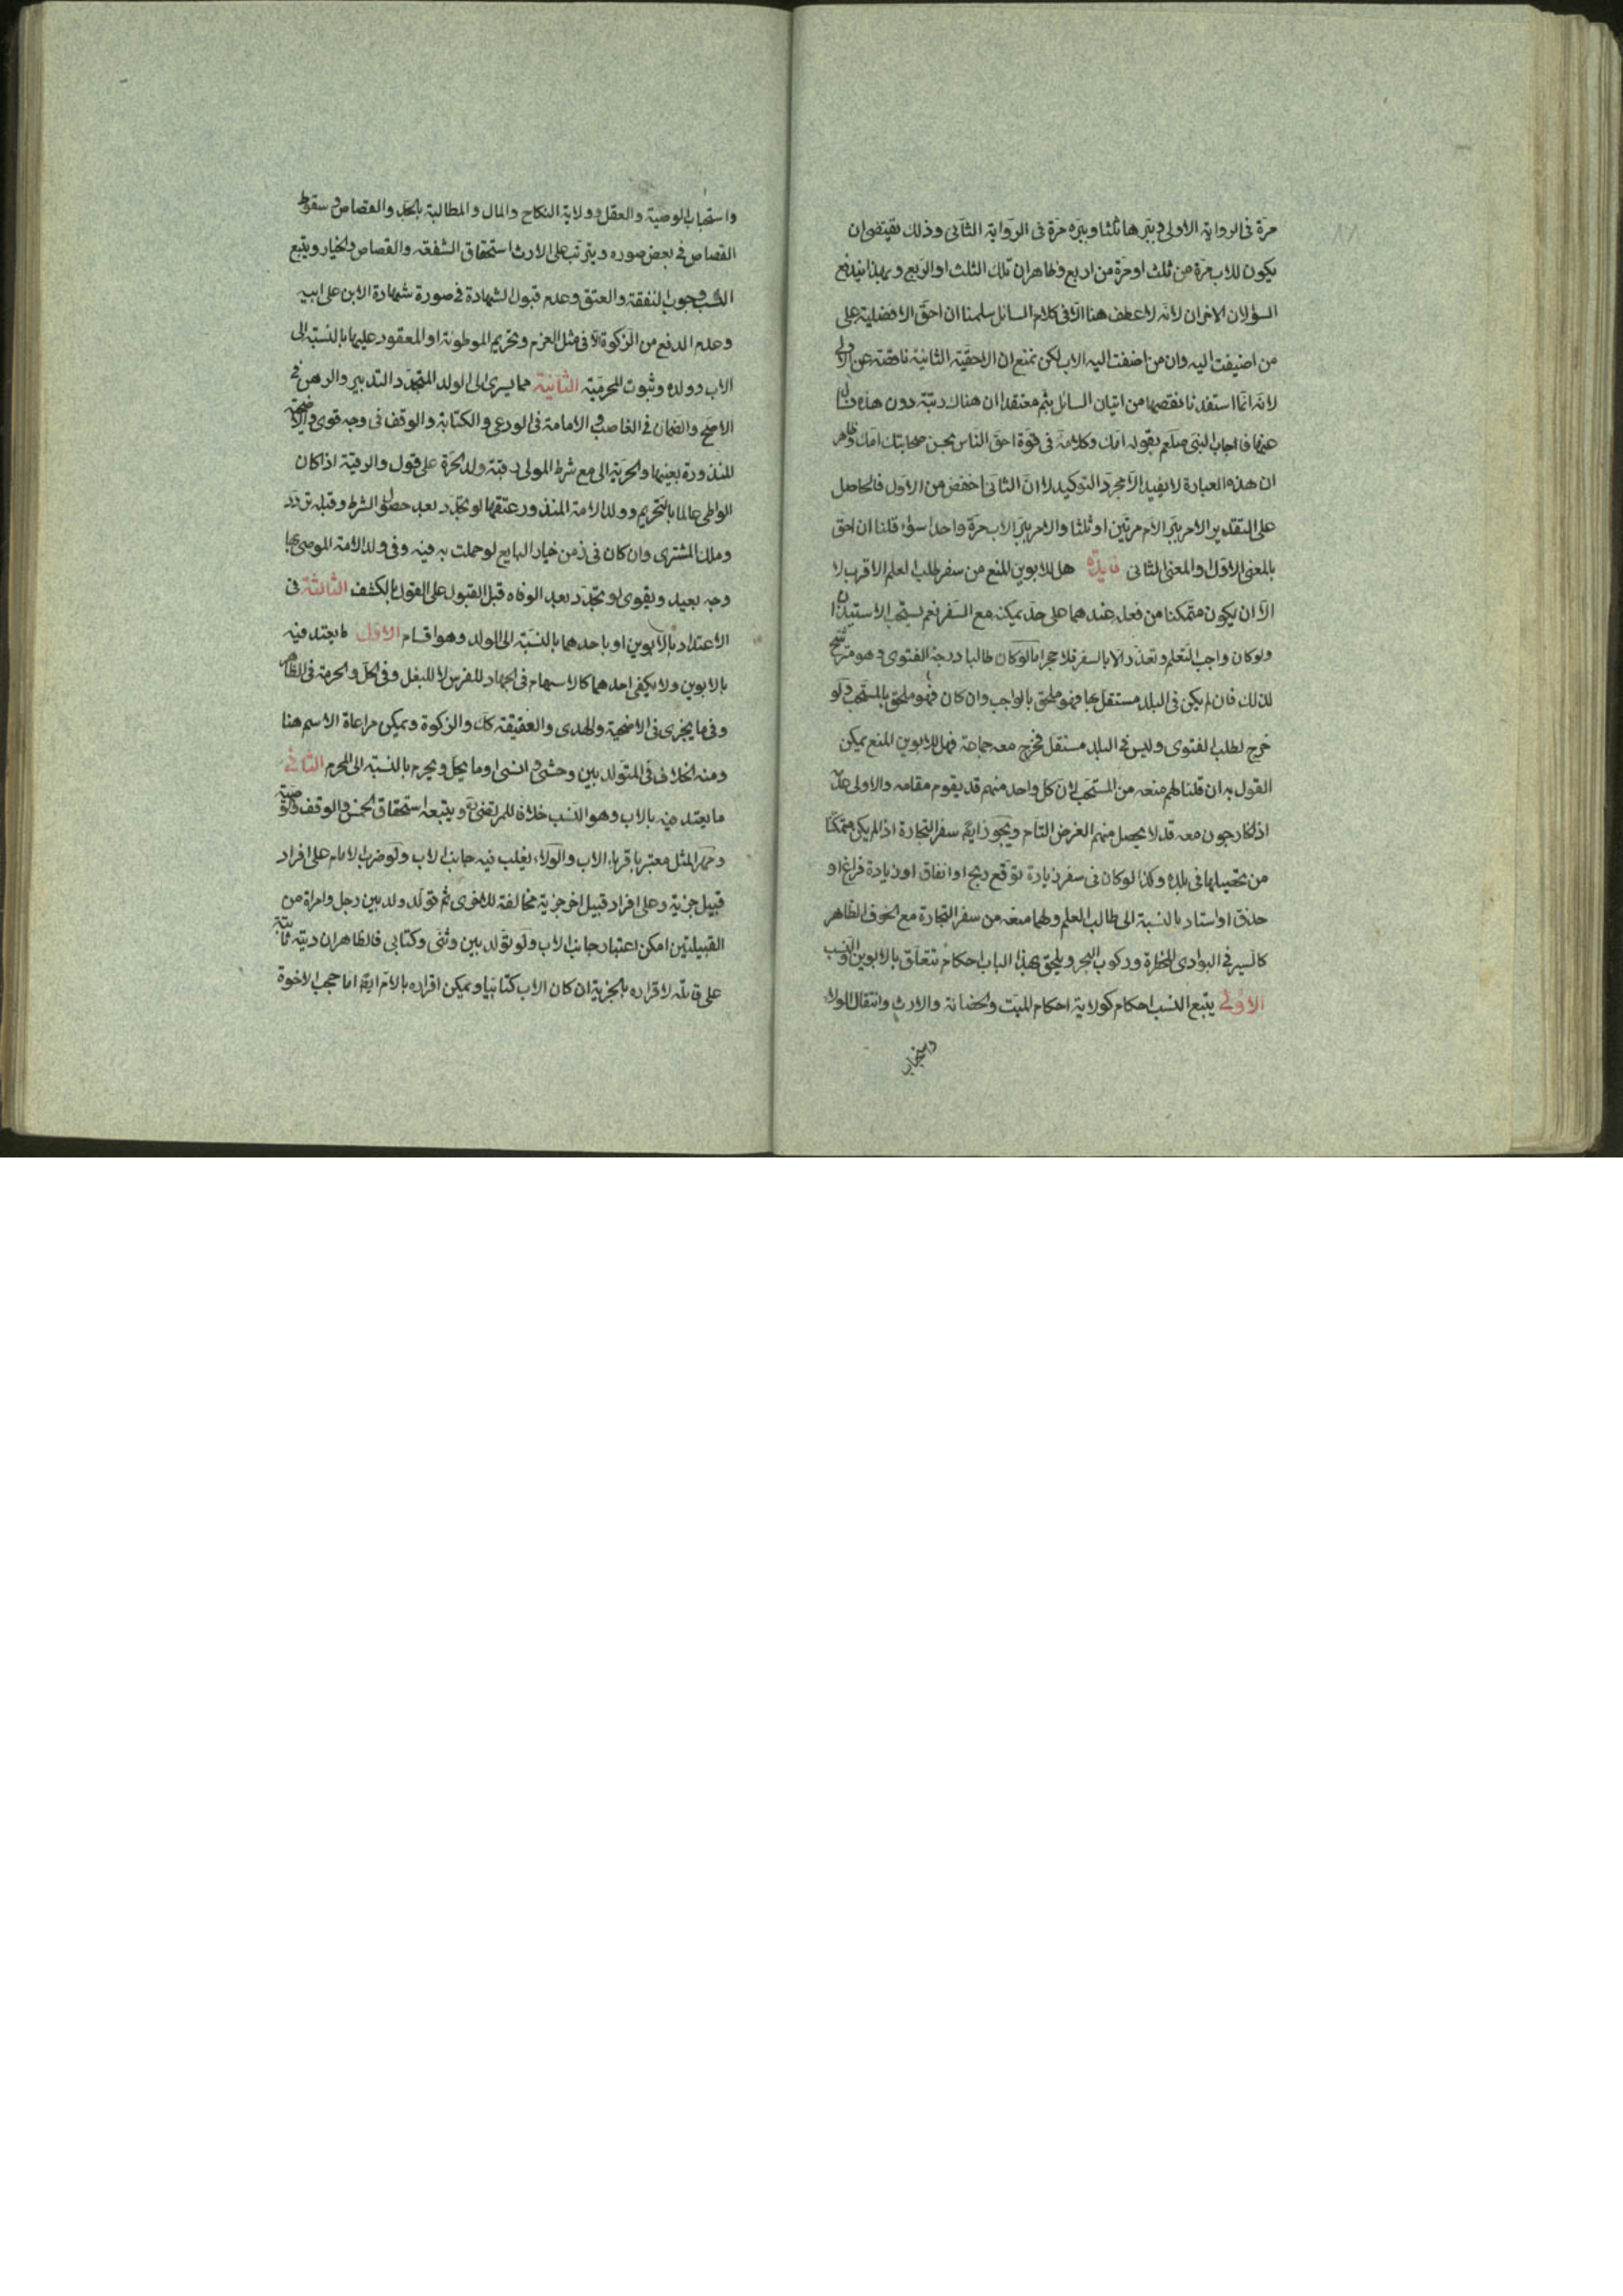 مرة فى الرواية الاولى وببرها ثلثا وببره مرة فى الرواية الثانى وذلك يقتضى ان
يكون للاب مرة من ثلث او مرة من اربع وظاهر ان تلك الثلث او الربع وبهذا يندفع
السؤلان الاخران لانه لا عطف هنا الا فى كلام السائل سلمنا ان احق الافضلية على
من اضيفت اليه وان من اضفت اليه الاب لكن نمنع ان الاحقية الثانية ناقصة عن الاولى
لانه انما استفدنا نقصها من اتيان السائل بثم معتقدا ان هناك رتبة دون هذه فسال
عنها فاجاب النبى صلعم بقوله امك وكلامه فى قوة احق الناس بحسن صحابتك امك وظاهر
ان هذه العبارة لا يفيد الا مجرد التوكيد لا ان الثانى اخفض من الاول فالحاصل
على التقدير الامر ببر الام مرتين او ثلثا والامر ببر الاب مرة واحدا سواء قلنا ان احق
بالمعنى الاول او المعنى الثانى فايدة هل للابوين المنع من سفر طلب العلم الاقرب لا
الا ان يكون متمكنا من فعله عندهما على حد يمكنه مع السفر نعم يستحب الاستيذان
ولو كان واجب التعلم وتعذر الا بالسفر فلا حجر اما لو كان طالبا درجة الفتوى وهو مترشح
لذلك فان لم يكن فى البلد مستقل بها فهو ملحق بالواجب وان كان فهو ملحق بالمستحب ولو
خرج لطلب الفتوى وليس فى البلد مستقل فخرج معه جماعة فهل للابوين المنع يمكن
القول به ان قلنا لهم منعه من المستحب لان كل واحد منهم قد يقوم مقامه والاولى عدمه
اذ الخارجون معه قد لا يحصل منهم الغرض التام ويجوز ايضا سفر التجارة اذا لم يكن متمكنا
من تحصيلها فى بلده وكذا لو كان فى سفر زيادة توقع ربح او انفاق او زيادة فراغ او
حذق او استاد بالنسبة الى طالب العلم ولهما منعه من سفر التجارة مع الخوف الظاهر
كالسير فى البوادى المخطرة وركوب البحر ويلحق بهذا الباب احكام تتعلق بالابوين والنسب
الاولى يتبع النسب احكام كولاية احكام الميت والحضانة والارث وانتقال الولاء
واستحباب
واستحباب الوصية والعقل وولاية النكاح والمال والمطالبة بالحد والقصاص وسقوط
القصاص فى بعض صوره ويترتب على الارث استحقاق الشفعة والقصاص والخيار ويتبع
النسب وجوب النفقة والعتق وعدم قبول الشهادة فى صورة شهادة الابن على ابيه
وعدم الدفع من الزكوة الا فى مثل الغرم وتحريم الموطوئة او المعقود عليها بالنسبة الى
الاب وولده وثبوت المحرمية الثانية مما يسرى الى الولد المتجدد التدبير والرهن فى
الاصح والضمان فى الغاصب والامامة فى الودعى والكتابة والوقف فى وجه قوى والاضحية
المنذورة بعينها والحرية الى مع شرط المولى رقبة ولد الحرة على قول والرقية اذا كان
الواطى عالما بالتحريم وولد الامة المنذور عتقها لو تجدد بعد حصول الشرط وقبله تردد
وملك المشترى وان كان فى زمن خيار البايع لو حملت به فيه وفى ولد الامة الموصى بها
وجه بعيد ويقوى لو تجدد بعد الوفاه قبل القبول على القول بالكشف الثالثة فى
الاعتداد بالابوين او باحدهما بالنسبة الى الولد وهو اقسام الاول ما يعتد فيه
بالابوين ولا يكفى احدهما كالاسهام فى الجهاد للفرس لا للبغل وفى الحل والحرمة فى الظاهر
وفى ما يجزى فى الاضحية والهدى والعقيقة كك والزكوة ويمكن مراعاة الاسم هنا
ومنه الخلاف فى المتولد بين وحشى وانسى او ما يحل ويحرم بالنسبة الى المحرم الثانى
ما يعتد فيه بالاب وهو النسب خلافا للمرتضى ويتبعه استحقاق الخمس والوقف والوصية
ومهر المثل معتبر باقرباء الاب والولاء يغلب فيه جانب الاب ولو ضرب الامام على افراد
قبيل جزية وعلى افراد قبيل اخر جزية مخالفة للاخرى ثم تولد ولد بين رجل وامراة من
القبيلتين امكن اعتبار جانب الاب ولو تولد بين وثنى وكتابى فالظاهر ان ديته ثابتة
على قاتله لاقراره بالجزية ان كان الاب كتابيا ويمكن اقراره بالام ايضا اما حجب الاخوة